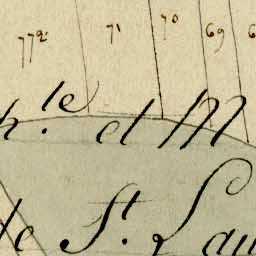 772 71 70 69
h.le d M
te St. Lau